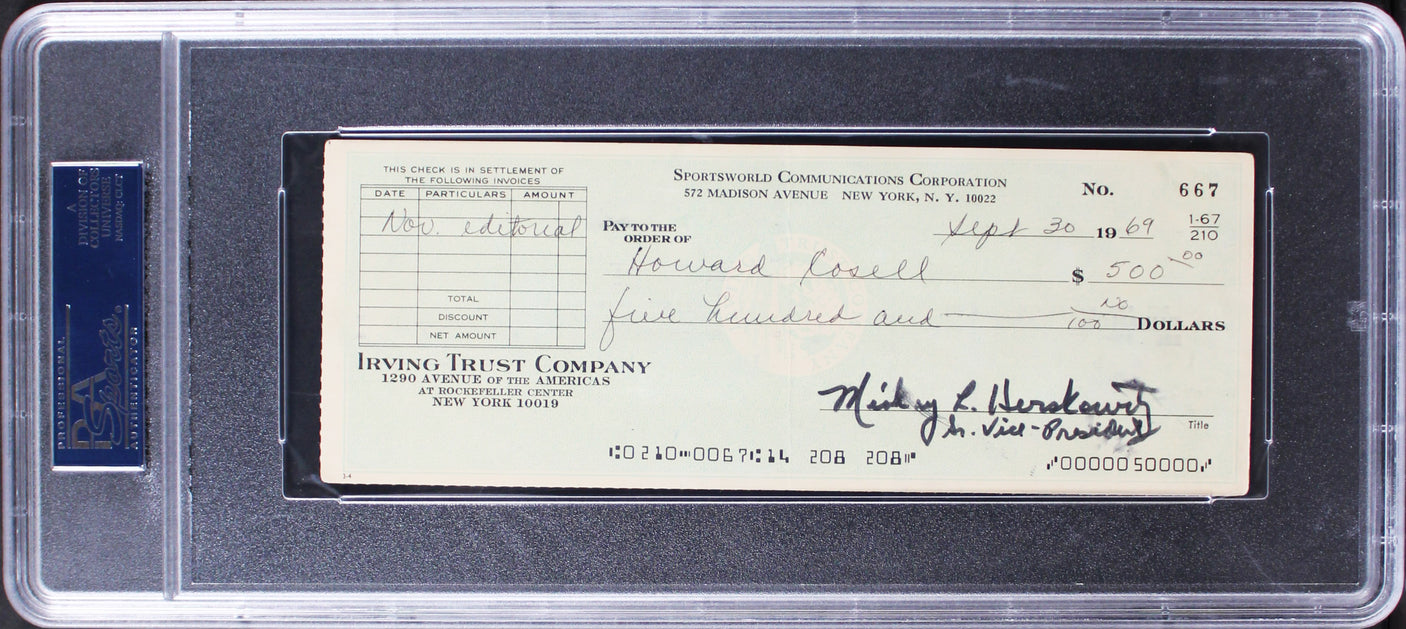 A
DIVISION OF
COLLECTORS
UNIVERSE
NASDAQ: CLCT
PROFESSIONAL
PSA
Sports
AUTHENTICATOR
THIS CHECK IS IN SETTLEMENT OF
THE FOLLOWING INVOICES
DATE PARTICULARS AMOUNT
Nov. editorial
TOTAL
DISCOUNT
NET AMOUNT
SPORTSWORLD COMMUNICATIONS CORPORATION
572 MADISON AVENUE NEW YORK, N. Y. 10022
No. 667
1-67
210
Sept 30 1969
PAY TO THE
ORDER OF
Howard Cosell $ 500 00
five hundred and no/100 DOLLARS
IRVING TRUST COMPANY
1290 AVENUE OF THE AMERICAS
AT ROCKEFELLER CENTER
NEW YORK 10019
Mickey L. Herskowitz
Sr. Vice-President
Title
⑆0210⑉0067⑆14 208 208⑈
⑇0000050000⑇